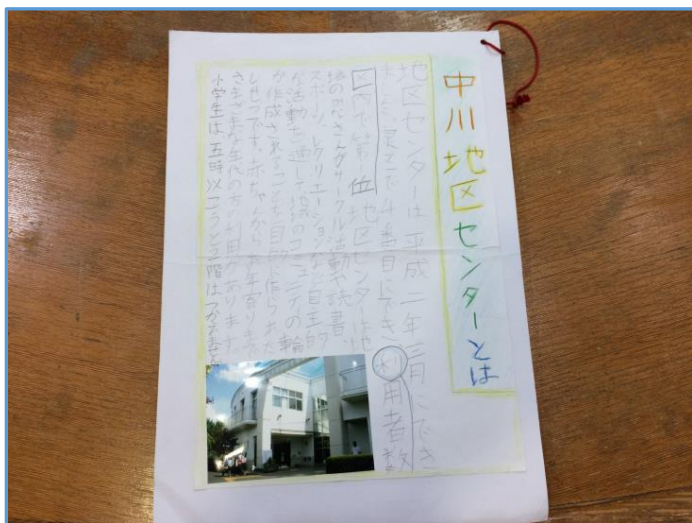 中川地区センターとは
地区センターは平成二年三月にでき
4番目にでき利用者数
区内で第一位地区センターは地
域のみなさんがサークル活動や読書、
スポーツ、レクリエーションなど自主的
な活動を通して地域のコミュニティの輪
が作成されることを目的に作られた
しせつです。赤ちゃんからお年寄りまで
さまざまな年代の方の利用があります。
小学生は、五時以